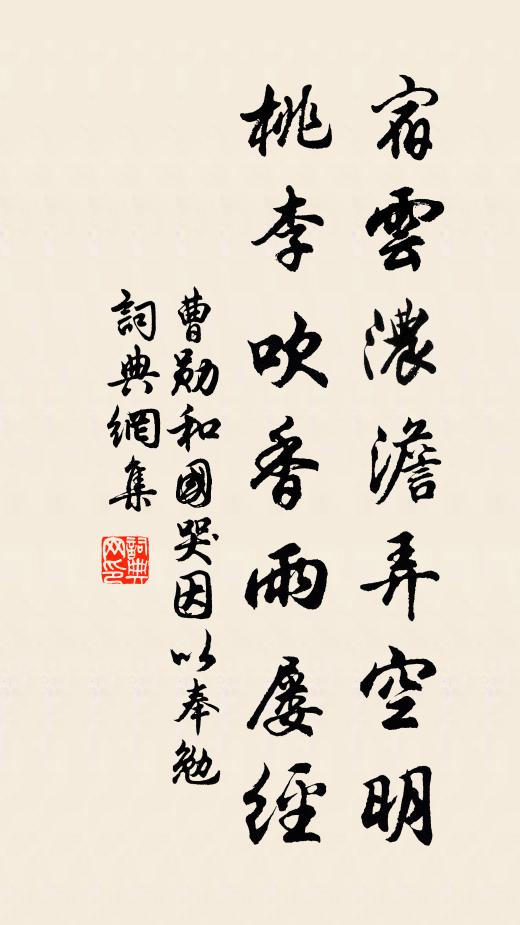 宿雲濃澹弄空明
桃李吹香雨屡經
曹勛和國哭因以奉勉
詞典網集
詞典网印